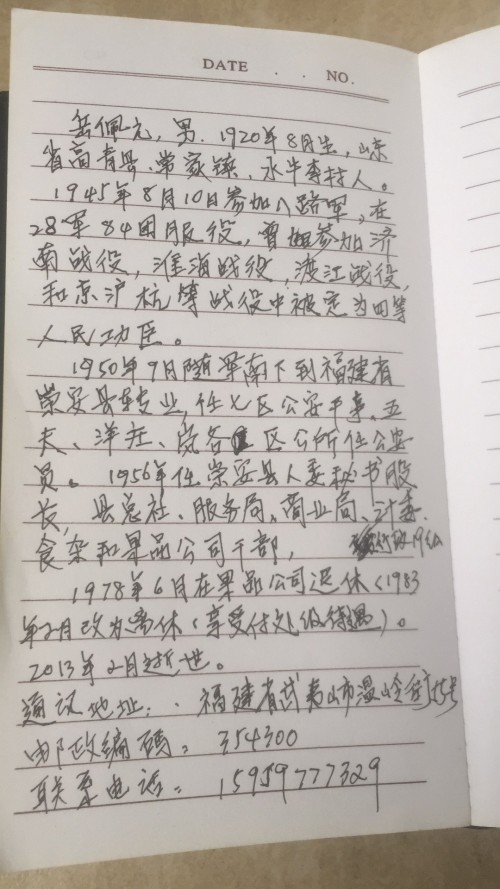 DATE . . NO.
岳佩元，男．1920年8月生，山东
省高青县、常家镇、水牛李村人。
1945年8月10日参加八路军，在
28军84团服役，曾参加济
南战役，淮海战役，渡江战役，
和京沪杭等战役中被定为四等
人民功臣。
1950年9月随军南下到福建省
崇安县转业，任七区公安干事、五
夫、洋庄、岚谷区公所任公安
员。1956年任崇安县人委秘书股
长，县总社、服务局、商业局、计委、
食杂和果品公司干部，行政19级
1978年6月在果品公司退休（1983
年2月改为离休（享受付处级待遇）。
2013年2月逝世。
通讯地址：福建省武夷山市温岭
邮政编码：354300
联系电话：15959777329